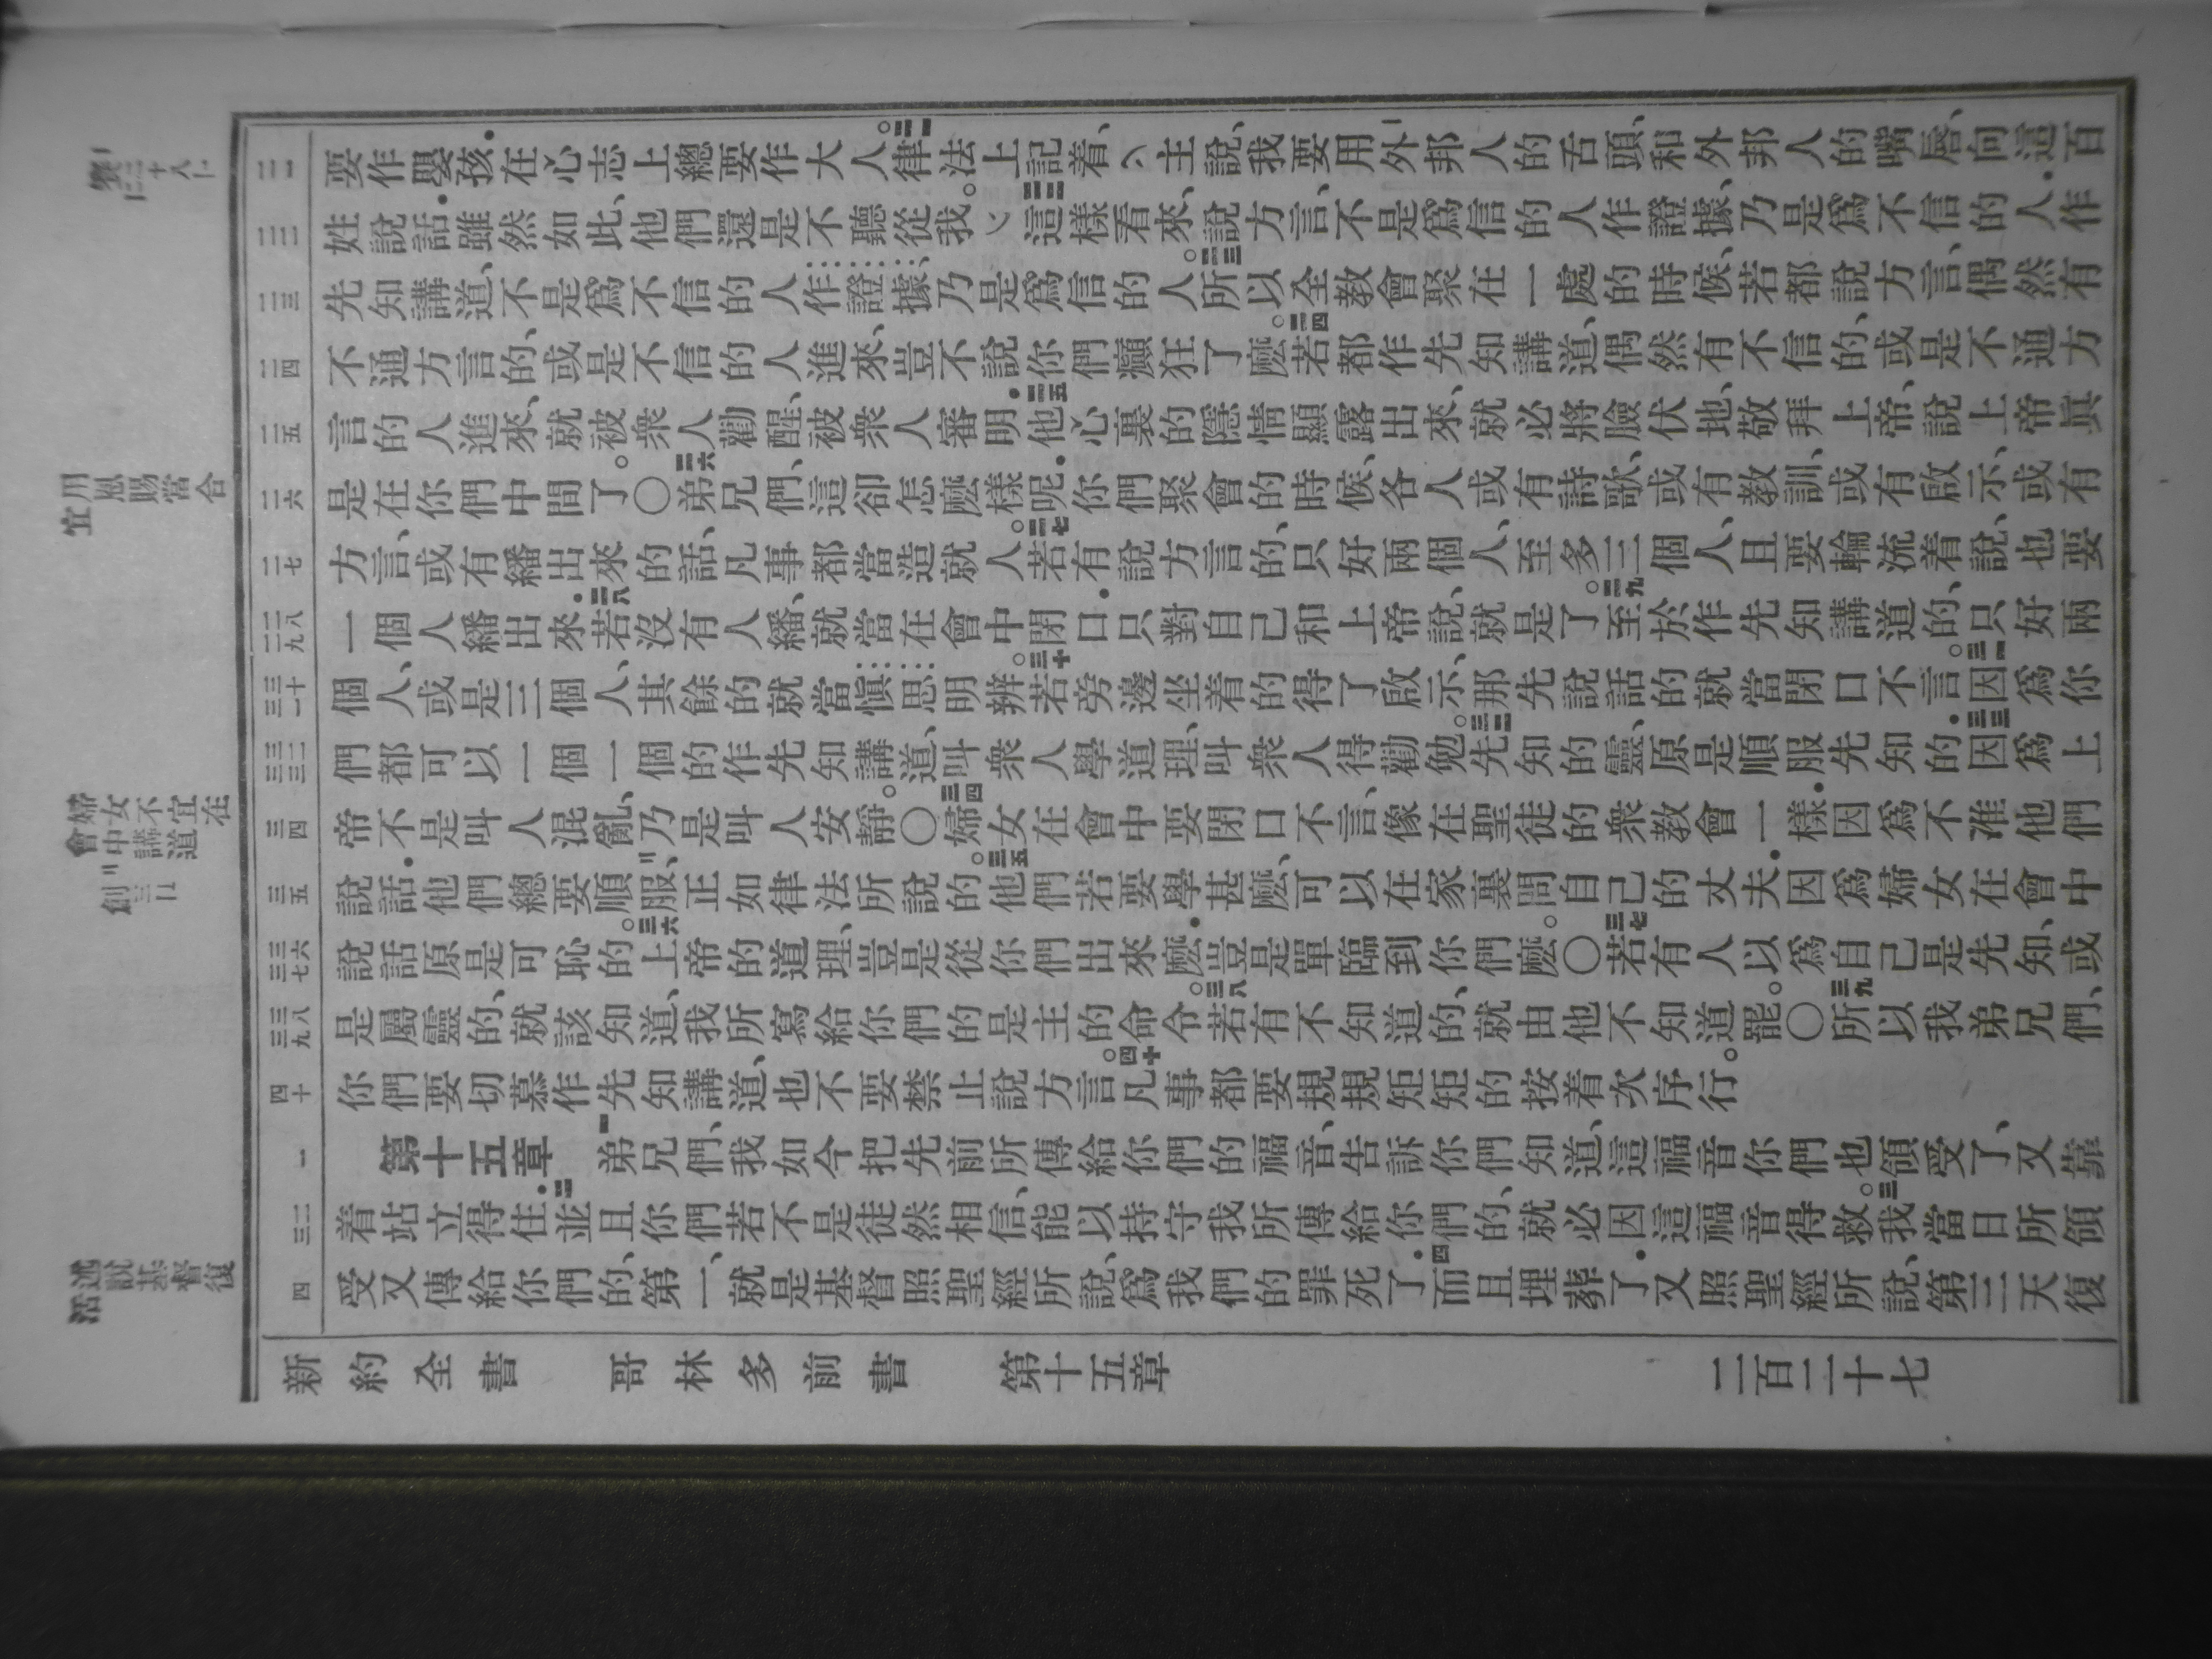 要作嬰孩．在心志上總要作大人。二一律法上記着、主說、我要用外邦人的舌頭、和外邦人的嘴唇、向這百
姓說話．雖然如此、他們還是不聽從我。二二這樣看來、說方言、不是爲信的人作證據、乃是爲不信的人．作
先知講道、不是爲不信的人作證據、乃是爲信的人。二三所以全教會聚在一處的時候、若都說方言、偶然有
不通方言的、或是不信的人進來、豈不說你們癲狂了麽。二四若都作先知講道、偶然有不信的、或是不通方
言的人進來、就被衆人勸醒、被衆人審明．二五他心裏的隱情顯露出來、就必將臉伏地、敬拜上帝、說上帝眞
是在你們中間了。〇二六弟兄們、這卻怎麽樣呢．你們聚會的時候、各人或有詩歌、或有教訓、或有啟示、或有
方言、或有繙出來的話、凡事都當造就人。二七若有說方言的、只好兩個人、至多三個人、且要輪流着說、也要
一個人繙出來．二八若沒有人繙、就當在會中閉口．只對自己和上帝說、就是了。二九至於作先知講道的、只好兩
個人、或是三個人、其餘的就當愼思明辨。三十若旁邊坐着的得了啟示、那先說話的就當閉口不言。三一因爲你
們都可以一個一個的作先知講道、叫衆人學道理、叫衆人得勸勉。三二先知的靈、原是順服先知的．三三因爲上
帝不是叫人混亂、乃是叫人安靜。〇三四婦女在會中要閉口不言、像在聖徒的衆教會一樣．因爲不准他們
說話．他們總要順服、正如律法所說的。三五他們若要學甚麽、可以在家裏問自己的丈夫．因爲婦女在會中
說話原是可恥的。三六上帝的道理、豈是從你們出來麽．豈是單臨到你們麽。〇三七若有人以爲自己是先知、或
是屬靈的、就該知道、我所寫給你們的是主的命令。三八若有不知道的、就由他不知道罷。〇三九所以我弟兄們、
你們要切慕作先知講道、也不要禁止說方言。四十凡事都要規規矩矩的按着次序行。
第十五章 一弟兄們、我如今把先前所傳給你們的福音、告訴你們知道、這福音你們也領受了、又靠
着站立得住．二並且你們若不是徒然相信、能以持守我所傳給你們的、就必因這福音得救。三我當日所領
受又傳給你們的、第一、就是基督照聖經所說、爲我們的罪死了．四而且埋葬了．又照聖經所說、第三天復
新約全書 哥林多前書 第十五章 二百二十七
合當賜恩用宜
婦女不宜在會中講道
述說基督復活